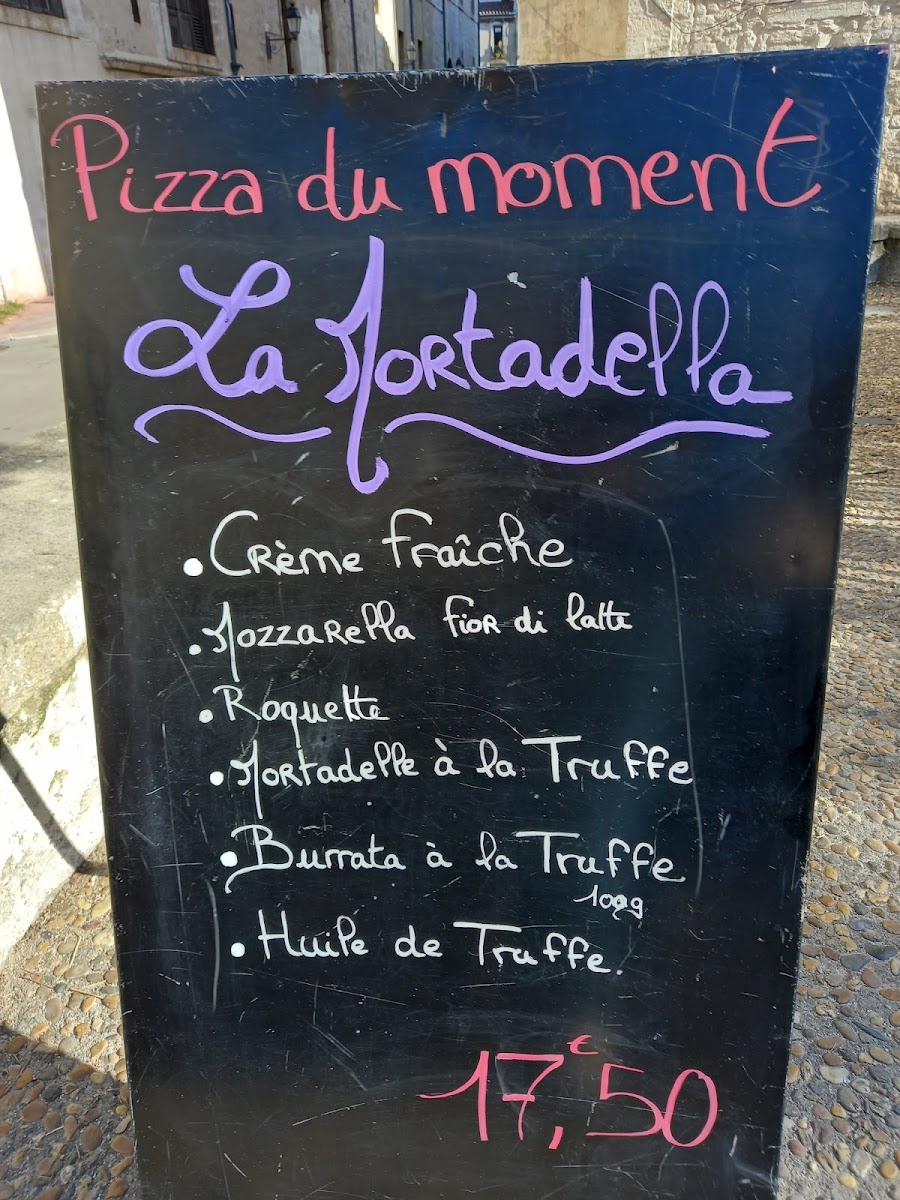 Pizza du moment
La Mortadella
• Crème fraîche
• Mozzarella fior di latte
• Roquette
• Mortadelle à la Truffe
• Burrata à la Truffe
100g
• Huile de Truffe.
17,€50